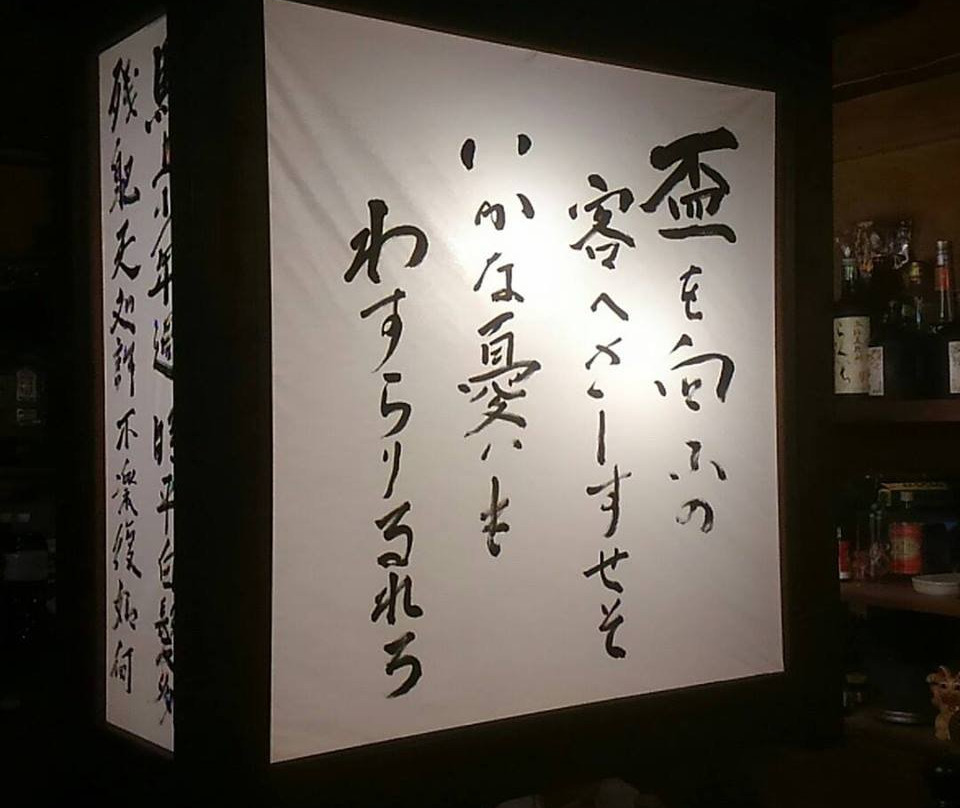 盃を向ふの
客へさしすせそ
いかな憂いも
わすらりるれろ
馬上少年過 時平白髪多
残躯天処許 不楽復如何